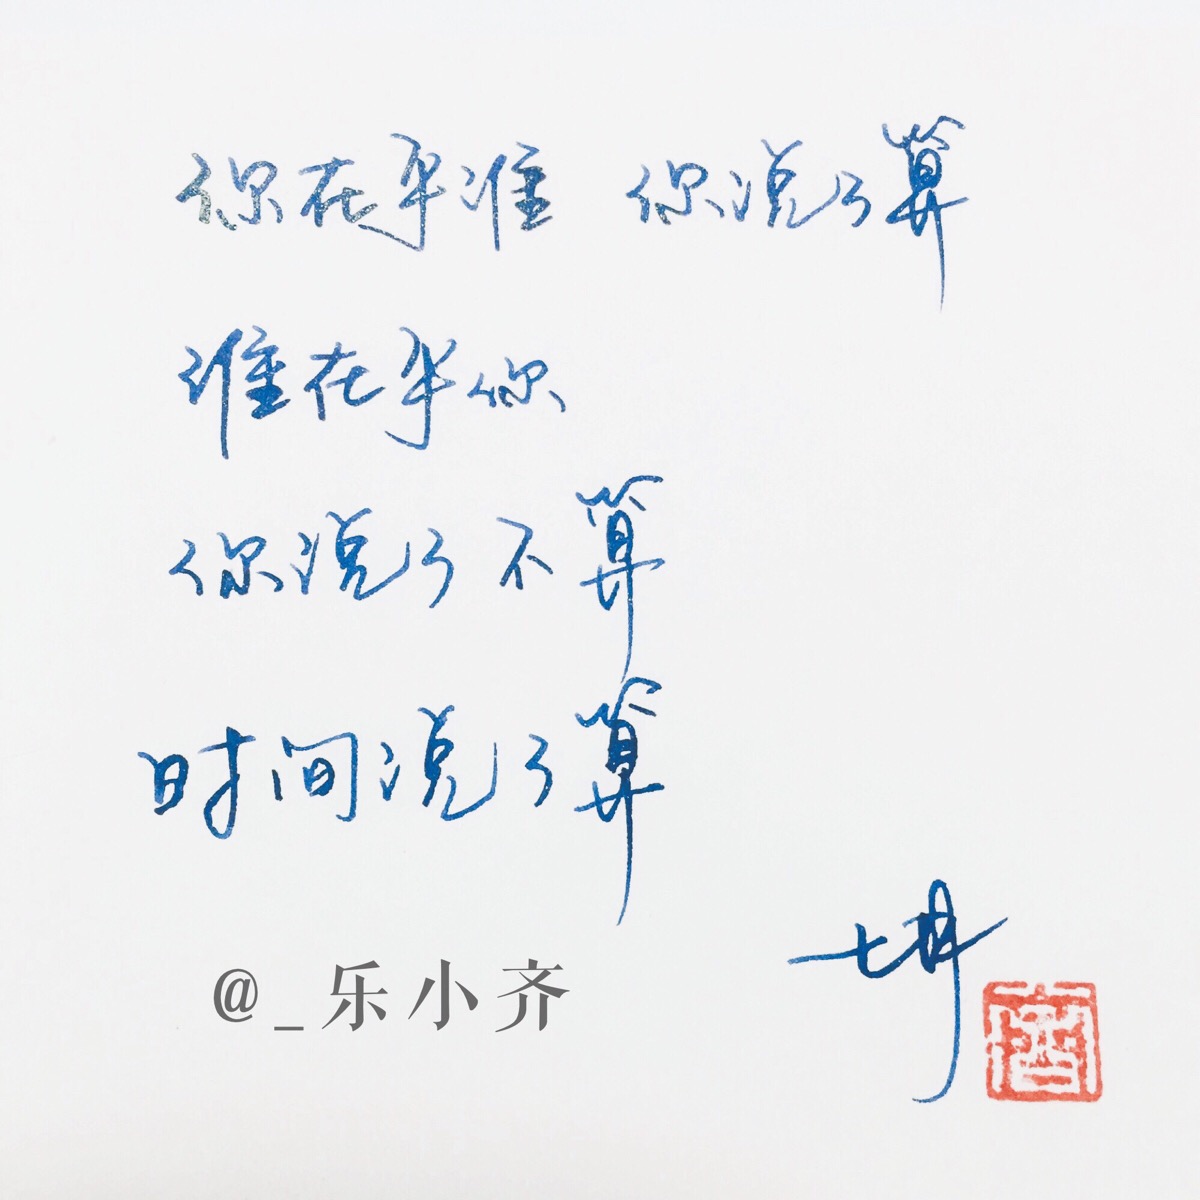 你在乎谁 你说了算
谁在乎你
你说了不算
时间说了算
@_乐小齐